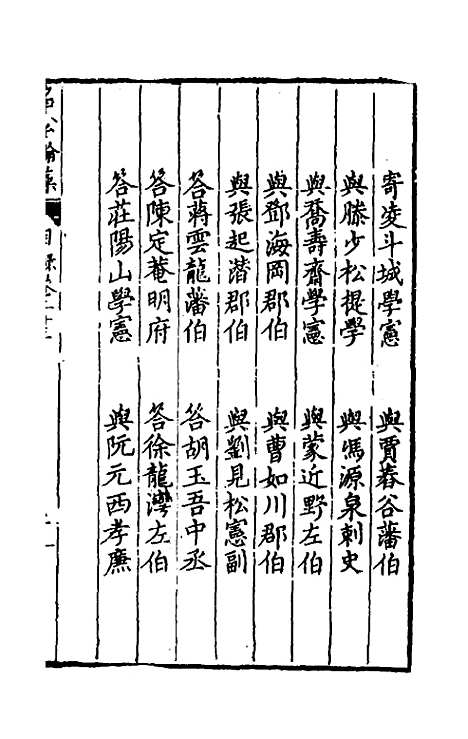 寄凌斗城學憲 與賈春谷藩伯
與滕少松提學 與馮源泉刺史
與喬壽齋學憲 與蒙近野左伯
與鄧海岡郡伯 與曹如川郡伯
與張起潛郡伯 與劉見松憲副
答蔣雲龍藩伯 答胡玉吾中丞
答陳定菴明府 答徐龍灣左伯
答莊陽山學憲 與阮元西孝廉
目錄